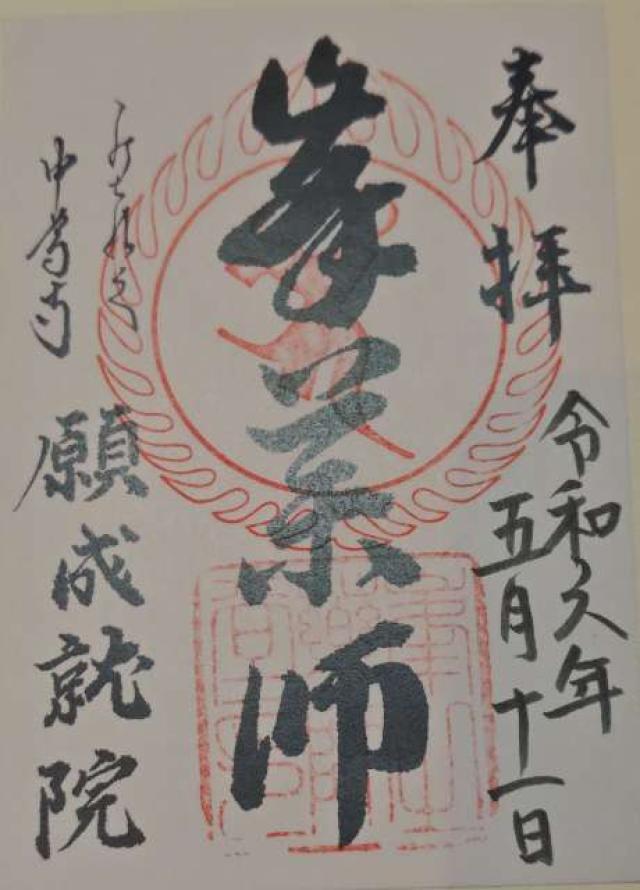 奉拝
令和元年
五月十一日
峯薬師
中尊寺
願成就院